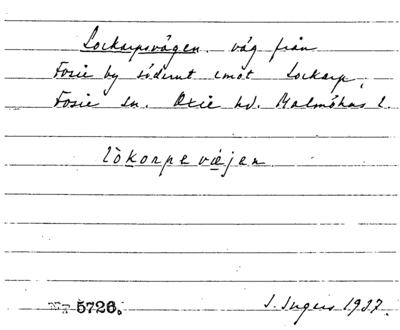 Lockarpsvägen. väg från
Fosie by söderut emot Lockarp,
Fosie sn. Oxie hd. Malmöhus l.
lòkorpevæjen
Nr 5726.
I. Ingers 1937.